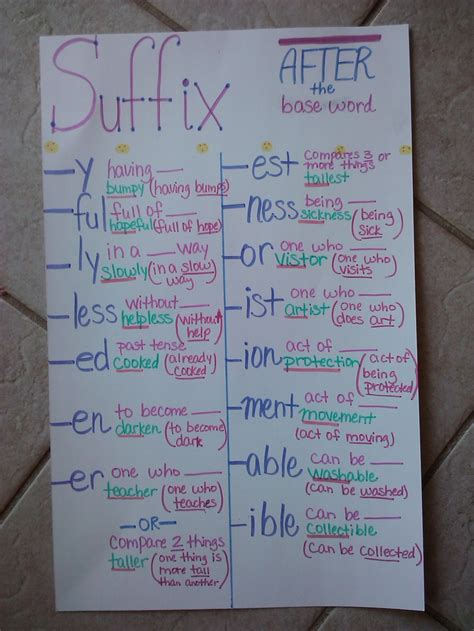 Suffix
AFTER
the
base word
-y having ___
bumpy (having bumps)
-ful full of ___
hopeful (full of hope)
-ly in a ___ way
slowly (in a slow
way)
-less without ___
helpless (without
help)
-ed past tense
cooked (already
cooked)
-en to become ___
darken (to become
dark)
-er one who ___
teacher (one who
teaches)
-OR-
compare 2 things
taller (one thing is
more tall
than another)
-est compares 3 or
more things
tallest
-ness being ___
sickness (being
sick)
-or one who ___
vistor (one who
visits)
-ist one who ___
artist (one who
does art)
-ion act of ___
protection (act of
being
protected)
-ment act of ___
movement
(act of moving)
-able can be ___
washable
(can be washed)
-ible can be ___
collectible
(can be collected)